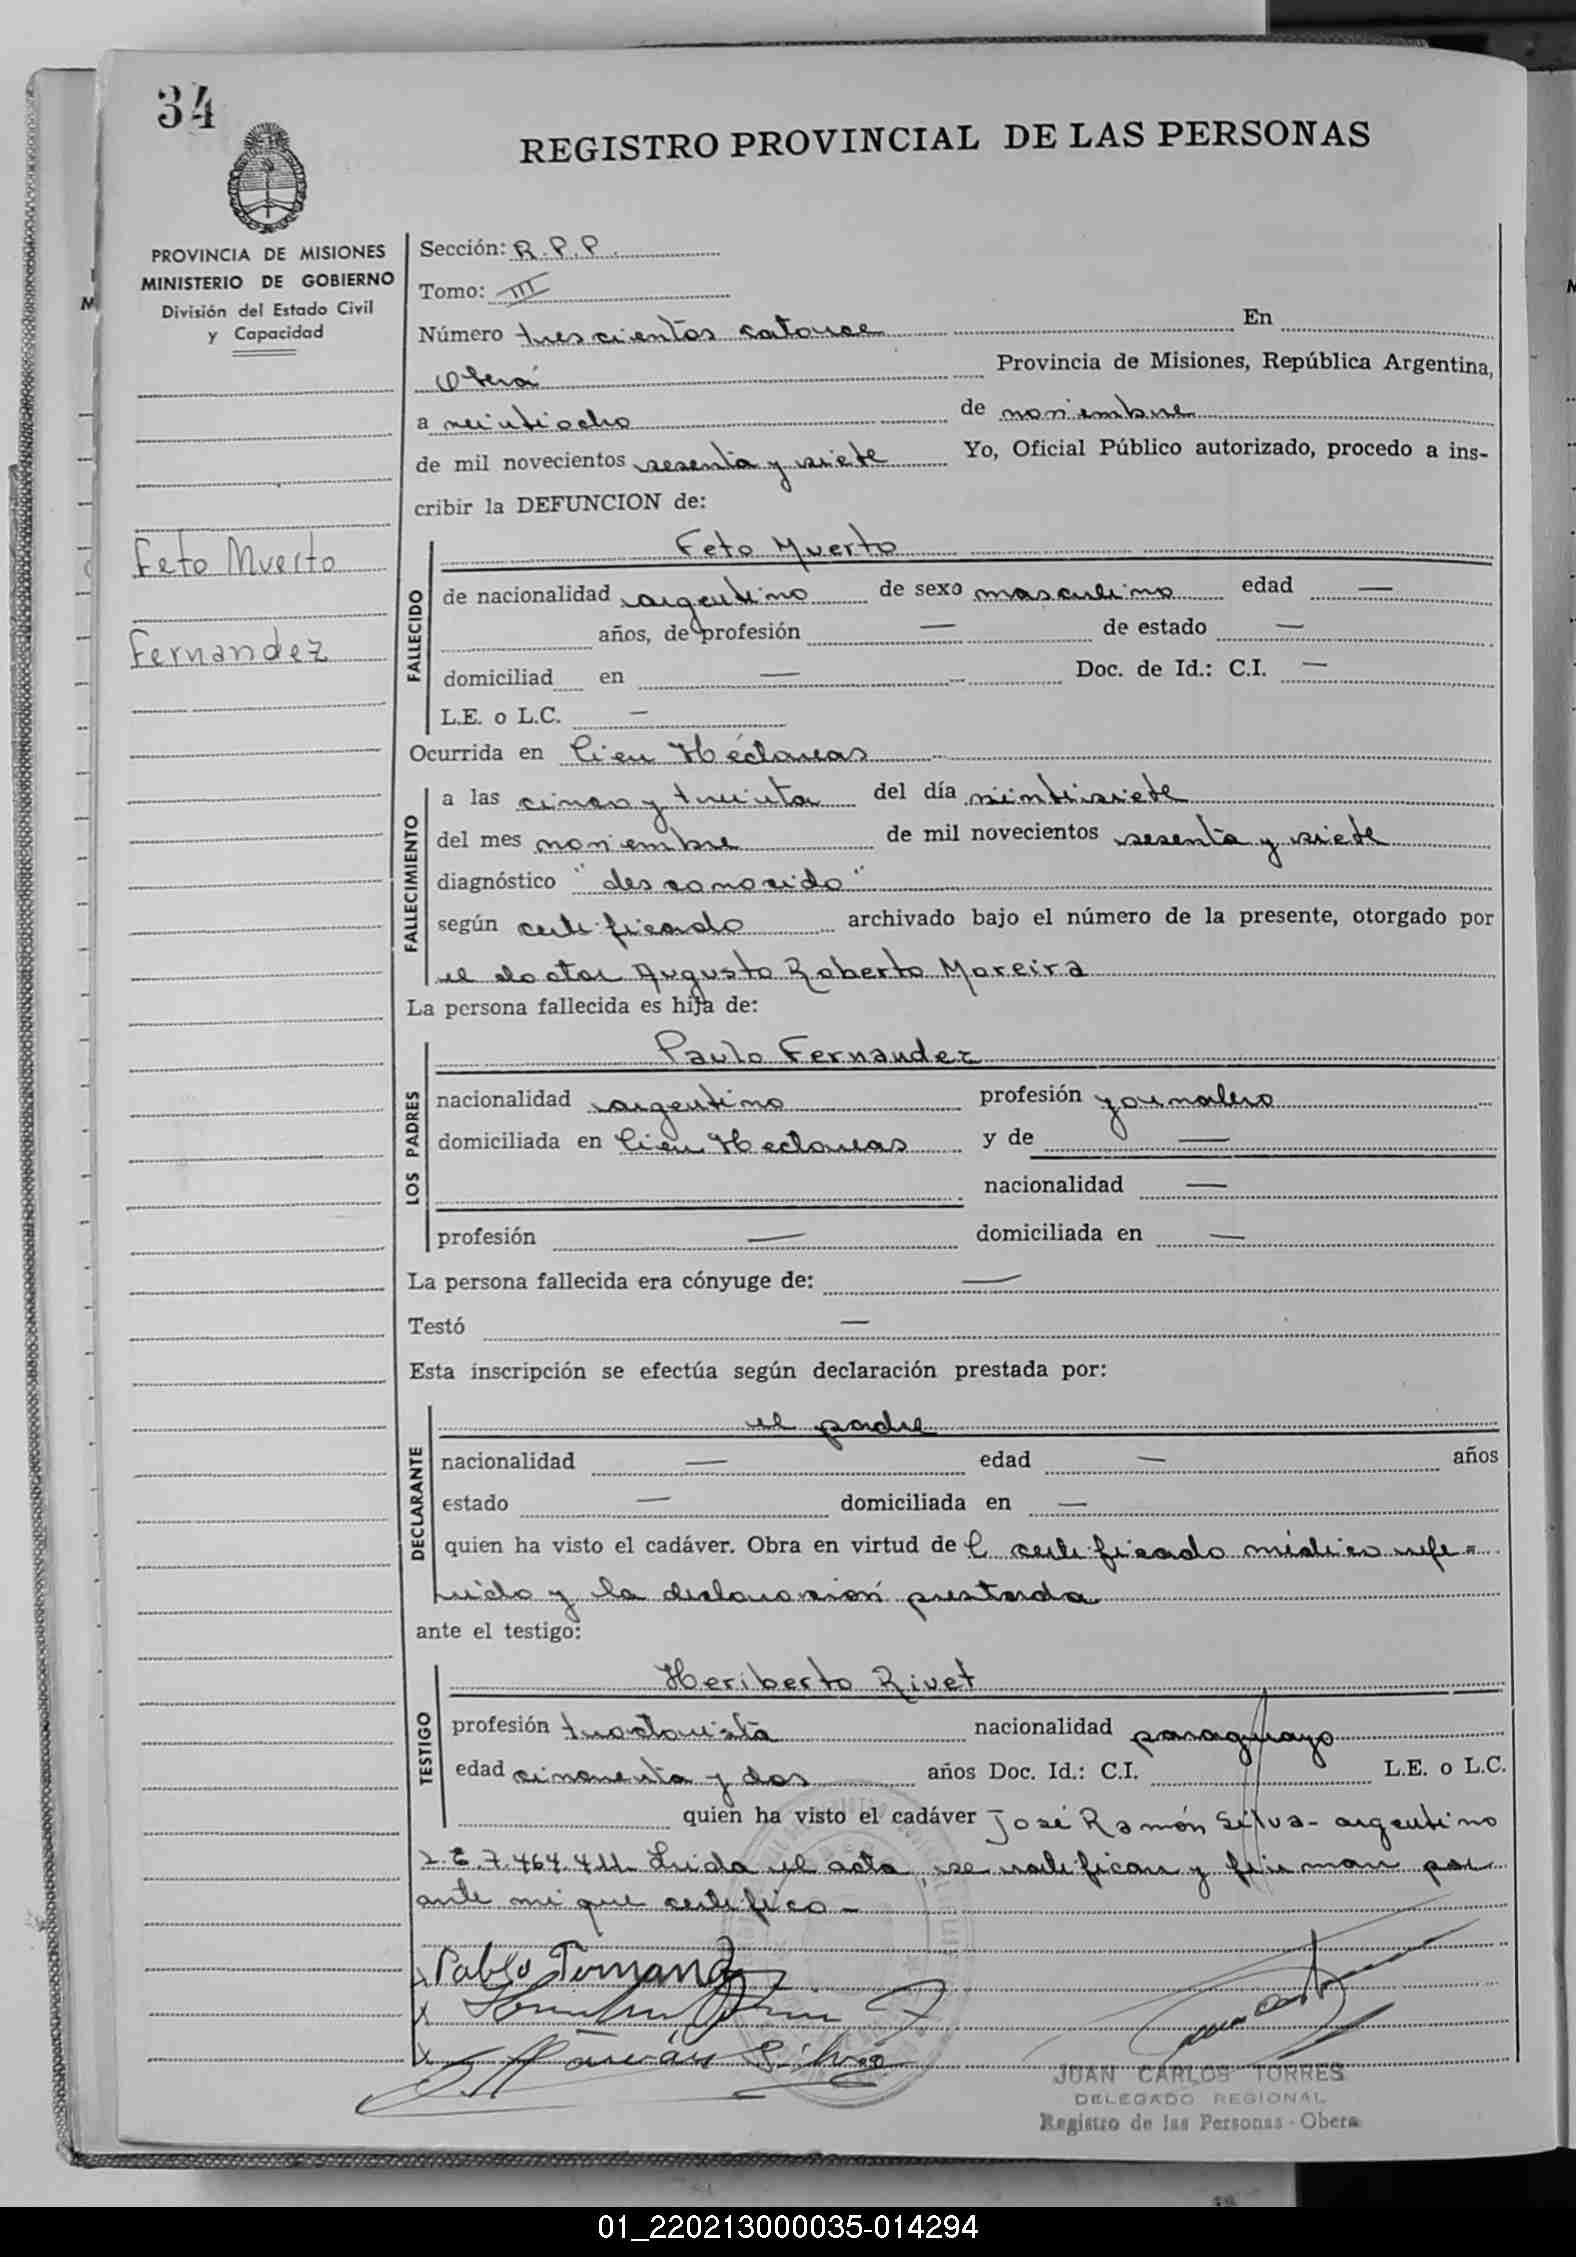 34
REGISTRO PROVINCIAL DE LAS PERSONAS
PROVINCIA DE MISIONES
MINISTERIO DE GOBIERNO
División del Estado Civil
y Capacidad
Feto Muerto
Fernandez
Sección: R.P.P.
Tomo: III
Número trescientos catorce En
Oberá Provincia de Misiones, República Argentina,
a veintiocho de noviembre
de mil novecientos sesenta y siete Yo, Oficial Público autorizado, procedo a ins-
cribir la DEFUNCION de:
FALLECIDO
Feto Muerto
de nacionalidad argentino de sexo masculino edad —
años, de profesión — de estado —
domiciliad en — Doc. de Id.: C.I. —
L.E. o L.C. —
Ocurrida en Cien Héctareas
FALLECIMIENTO
a las cinco y treinta del día veintisiete
del mes noviembre de mil novecientos sesenta y siete
diagnóstico "desconocido"
según certificado archivado bajo el número de la presente, otorgado por
el doctor Augusto Roberto Moreira
La persona fallecida es hija de:
LOS PADRES
Paulo Fernandez
nacionalidad argentino profesión jornalero
domiciliada en Cien Hectareas y de —
nacionalidad —
profesión — domiciliada en —
La persona fallecida era cónyuge de: —
Testó —
Esta inscripción se efectúa según declaración prestada por:
DECLARANTE
el padre
nacionalidad — edad — años
estado — domiciliada en —
quien ha visto el cadáver. Obra en virtud del certificado médico refe=
rido y la declaración prestada
ante el testigo:
TESTIGO
Heriberto Rivet
profesión tractorista nacionalidad paraguayo
edad cincuenta y dos años Doc. Id.: C.I. L.E. o L.C.
quien ha visto el cadáver José Ramón Silva- argentino
L.E.7.464.411. Leida el acta, se ratifican y firman por
ante mi que certifico-
Pablo Fernand
Ramón Silva
JUAN CARLOS TORRES
DELEGADO REGIONAL
Registro de las Personas - Obera
01_220213000035-014294